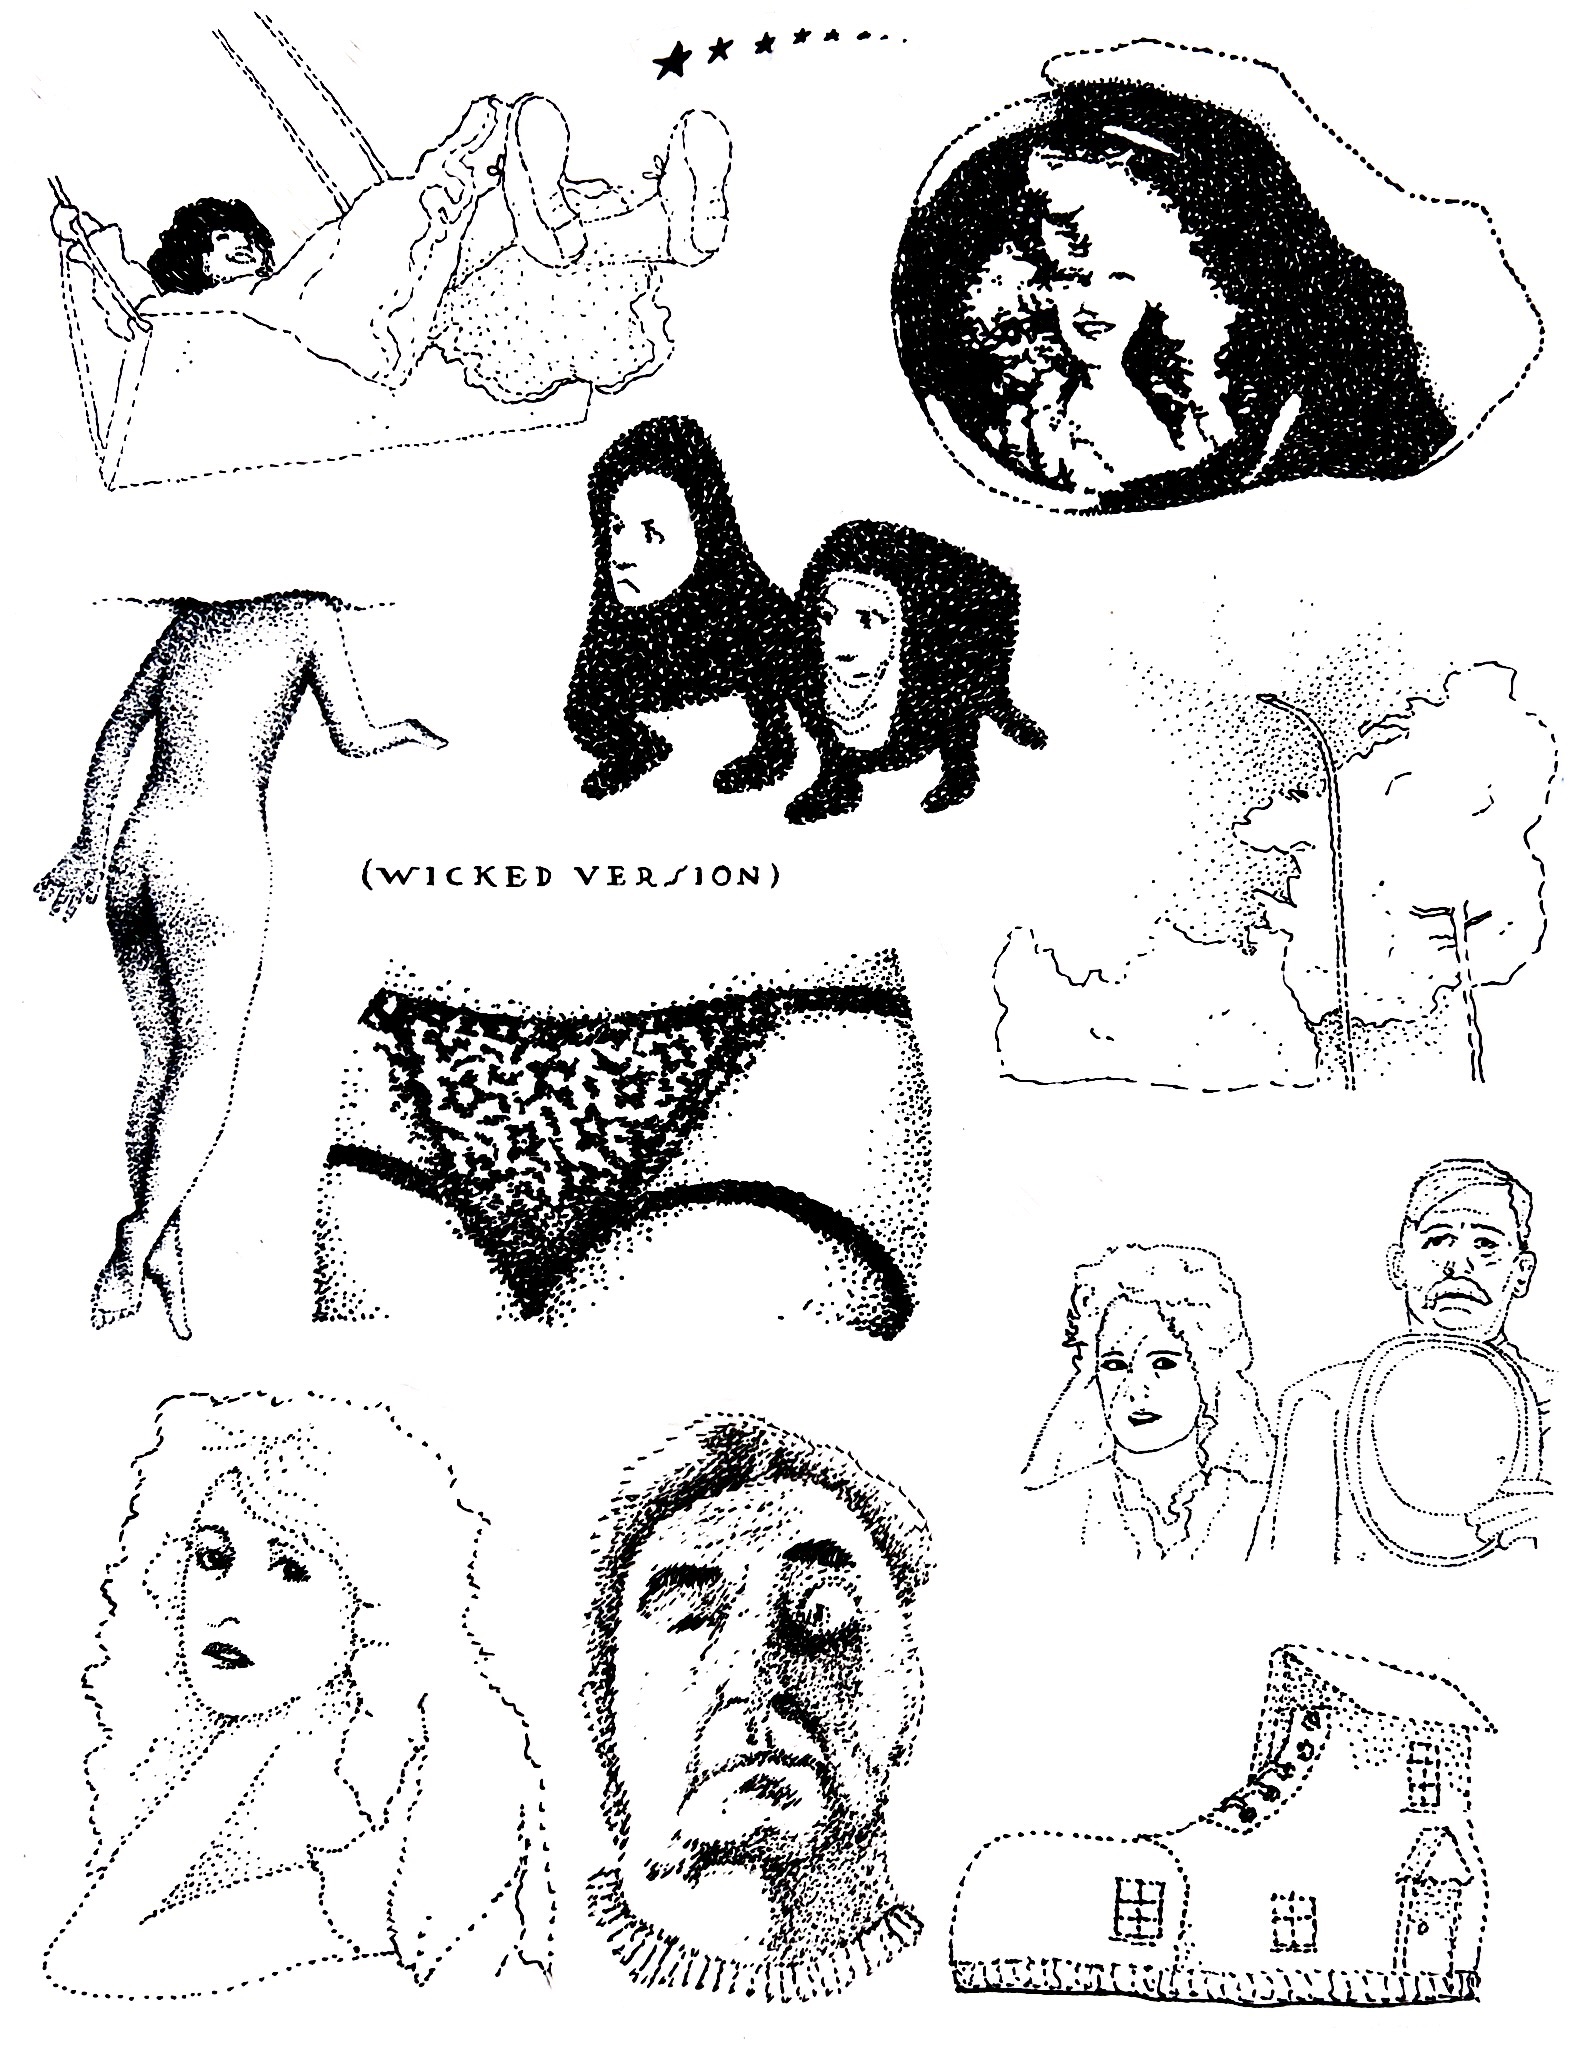 (WICKED VERSION)